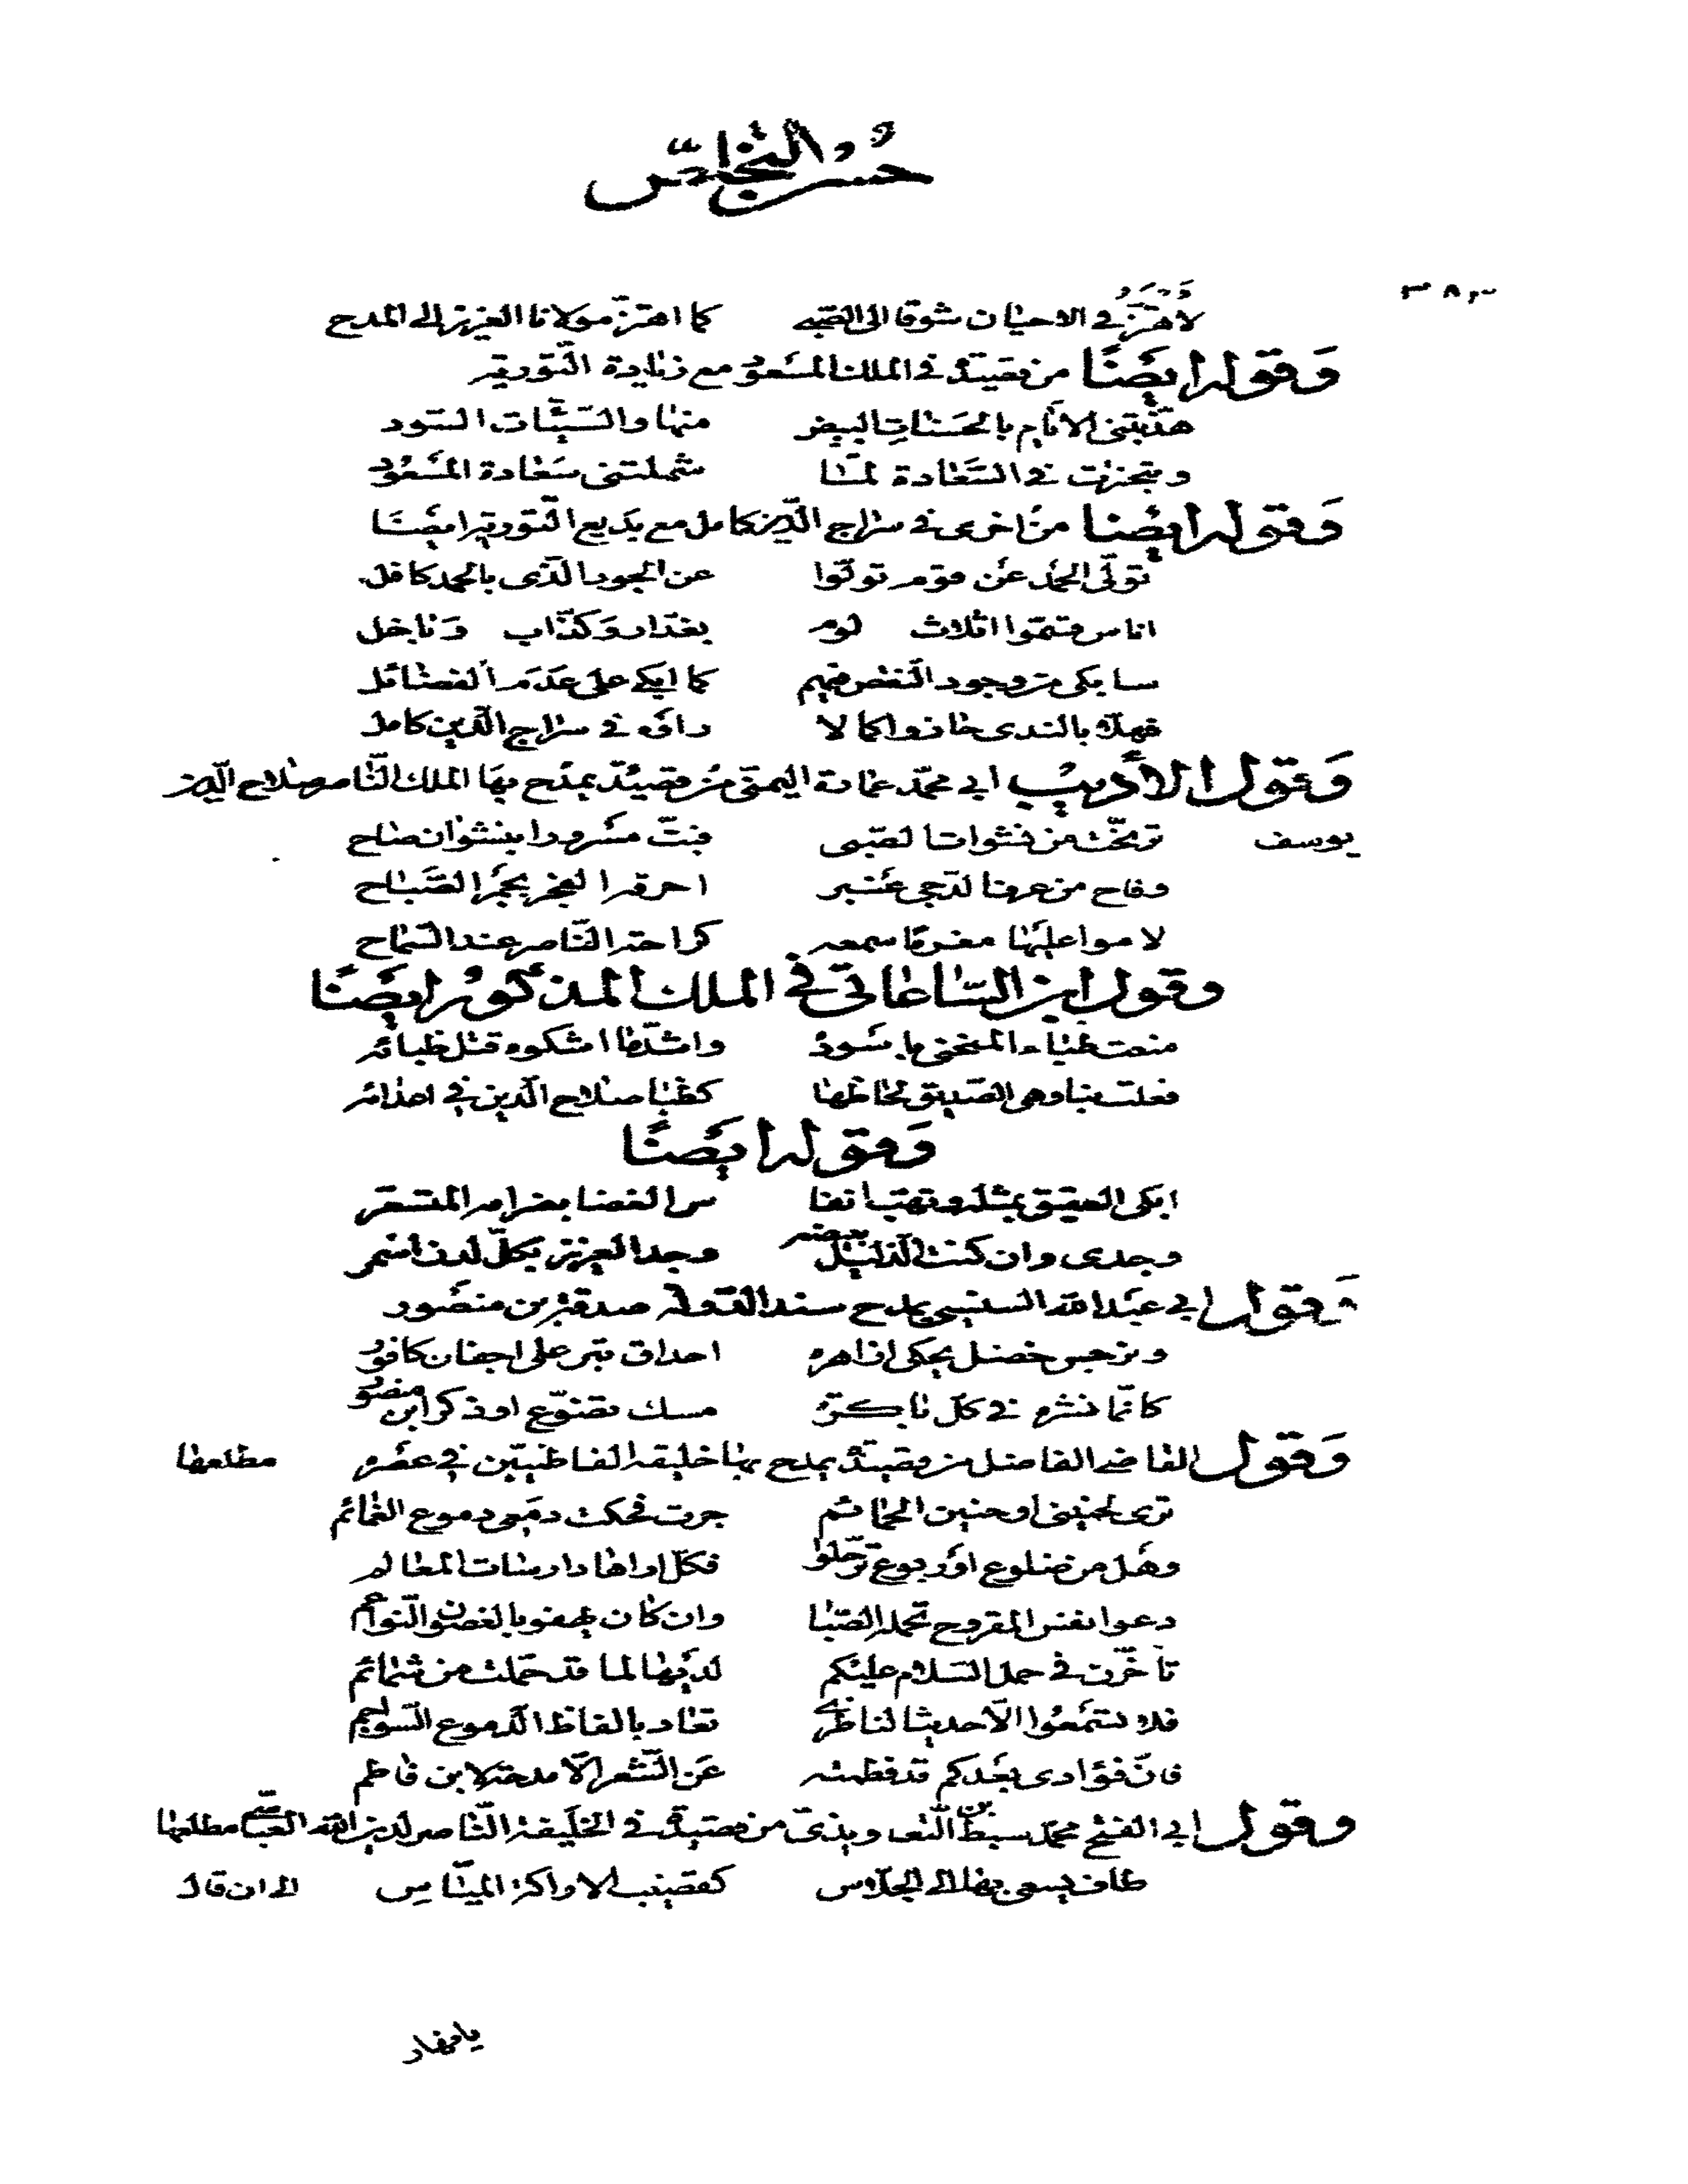 حُسْنُ التَّخَلُّصِ
لاهتز في الاحيان شوقا الى الصبى كما اهتز مولانا العزيز الى المدح
وَقوله ايضًا من قصيدة في الملك المسعود مع زيادة التورية
هذبتنى الايام بالحسنات البيض منها والسيئات السود
وتجزات في السعادة لما شملتنى سعادة المسعود
وَقوله ايضًا من اخرى في سراج الدين كامل مع بديع التورية ايضًا
تولى الحمد عن قوم تولوا عن الجود الذى بالحمد كافل
اناس قسموا اثلاث لوم بغدار وكذاب وباخل
سابكى من وجود النقص فيهم كما ابكى على عدم الفضائل
فهلا بالندى حازوا كمالا راوه في سراج الدين كامل
وَقول الأديب ابي محمد عمارة اليمنى من قصيدة يمدح بها الملك الناصر صلاح الدين
يوسف ترنحت من نشوات الصبى فبت مسرورا بنشوان صاح
وفاح من عرف الدجى عنبر احرقه الفجر بجمر الصباح
لاموا عليها مغرما سمعه كراحة الناصر عند السماح
وقول ابن الساعاتى في الملك المذكور ايضًا
منعت ظباء المنحنى باسوده واشد ما اشكوه قتل ظبائه
فعلت بنا وهى الصديق لحاظها كظبا صلاح الدين في اعدائه
وَقوله ايضًا
ابكى العقيق بمثله وتهب انفا س الغضا بغرامه المتسعر
وجدى وان كنت الذليل ببيضه وجد العزيز بكل لدن اسمر
وَقول ابي عبد الله السنبسى يمدح سند الدولة صدقة بن منصور
ونرجس خضل يحكى ازاهره احداق تبر على اجفان كافور
كانما نشره في كل باكرة مسك تضوع او ذكر ابن منصور
وَقول القاضى الفاضل من قصيدة يمدح بها خليفة الفاطميين في عصره مطلعها
ترى لحنينى او حنين الحمائم جرت فحكت دمعى دموع الغمائم
وهل من ضلوع او ربوع ترحلوا فكل اراها دارسات المعالم
دعوا نفس المقروح تحمله الصبا وان كان يهفو بالغصون النواعم
تأخرن في حمل السلام عليكم لديها لما قد حملت من شمائم
فلا تسمعوا الا حديثا لناظرى تعاد بالفاظ الدموع السواجم
فان فؤادى بعدكم قد فطمته عن الشعر الا مدحة لابن فاطم
وقول ابي الفتح محمد سبط بن التعاويذى من قصيدة في الخليفة الناصر لدين الله العباسى مطلعها
طاف يسعى بها الى الجلاس كقضيب الاراكة المياس الى ان قال